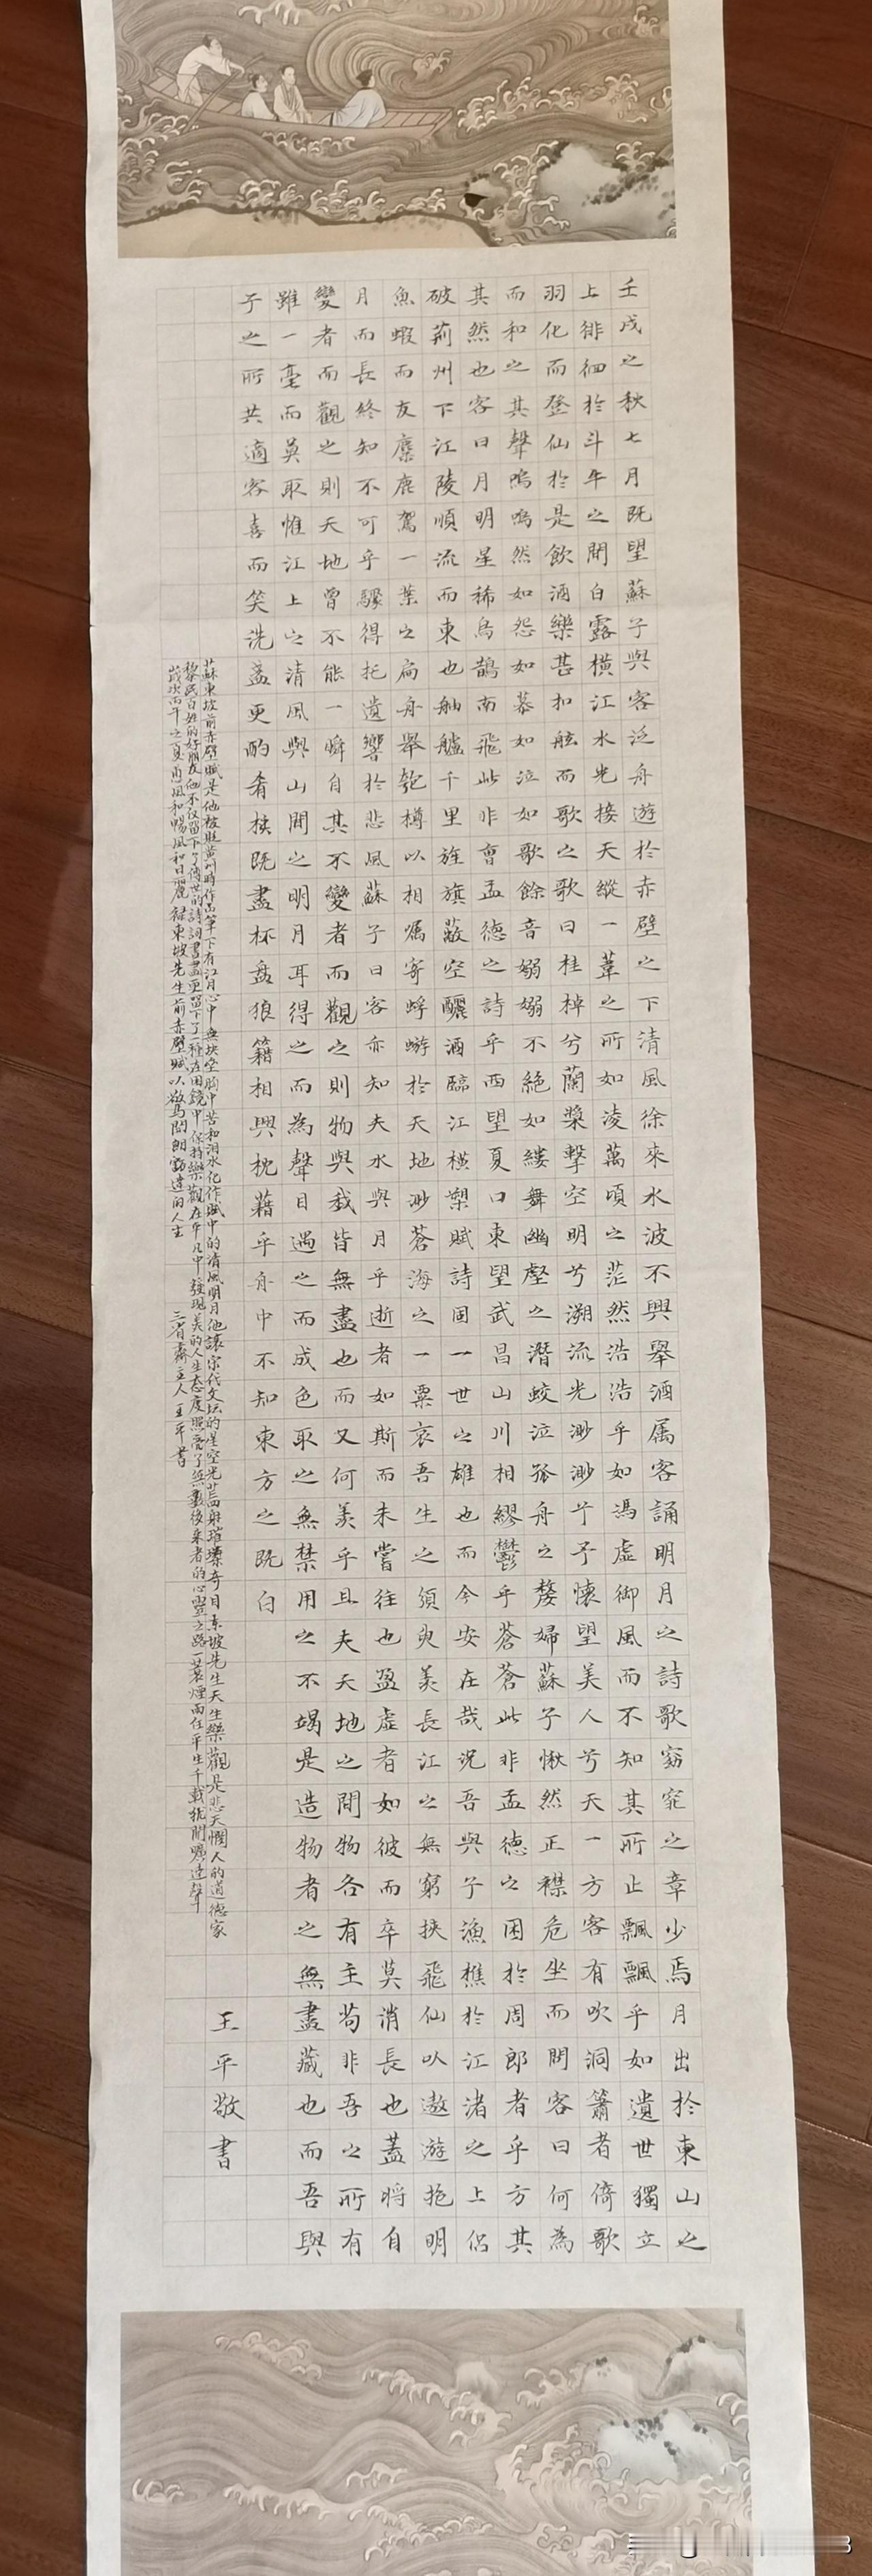 壬戌之秋七月既望蘇子與客泛舟遊於赤壁之下清風徐來水波不興舉酒属客誦明月之詩歌窈窕之章少焉月出於東山之
上徘徊於斗牛之間白露橫江水光接天縱一葦之所如淩萬頃之茫然浩浩乎如馮虛御風而不知其所止飄飄乎如遺世獨立
羽化而登仙於是飲酒樂甚扣舷而歌之歌曰桂棹兮蘭槳擊空明兮溯流光渺渺兮予懷望美人兮天一方客有吹洞簫者倚歌
而和之其聲嗚嗚然如怨如慕如泣如歌餘音嫋嫋不絕如縷舞幽壑之潛蛟泣孤舟之嫠婦蘇子愀然正襟危坐而問客曰何為
其然也客曰月明星稀烏鵲南飛此非曹孟德之詩乎西望夏口東望武昌山川相繆鬱乎蒼蒼此非孟德之困於周郎者乎方其
破荊州下江陵順流而東也舳艫千里旌旗蔽空釃酒臨江橫槊賦詩固一世之雄也而今安在哉況吾與子漁樵於江渚之上侶
魚蝦而友麋鹿駕一葉之扁舟舉匏樽以相嘱寄蜉蝣於天地渺蒼海之一粟哀吾生之須臾羨長江之無窮挾飛仙以遨遊抱明
月而長終知不可乎驟得托遺響於悲風蘇子曰客亦知夫水與月乎逝者如斯而未嘗往也盈虛者如彼而卒莫消長也蓋將自
變者而觀之則天地曾不能一瞬自其不變者而觀之則物與我皆無盡也而又何羨乎且夫天地之間物各有主苟非吾之所有
雖一毫而莫取惟江上之清風與山間之明月耳得之而為聲目遇之而成色取之無禁用之不竭是造物者之無盡藏也而吾與
子之所共適客喜而笑洗盞更酌肴核既盡杯盤狼籍相與枕藉乎舟中不知東方之既白
王平敬書
蘇東坡前赤壁賦是他被貶黃州時作品筆下有江月心中無塊壘胸中苦和淚水化作賦中的清風明月他讓宋代文坛的星空光芒四射璀璨奇目東坡先生天生樂觀是悲天憫人的道德家
黎民百姓的好朋友他不仅留下了傳世的詩詞書畫更留下了一種在困鏡中保持樂觀在平凡中發現美的人生态度照亮了無數後来者的心靈之路一蓑煙雨任平生千載犹聞曠達聲
歲次丙午之夏惠風和暢風和日麗録東坡先生前赤壁賦以敬爲開朗豁達的人生 三省齋主人王平書